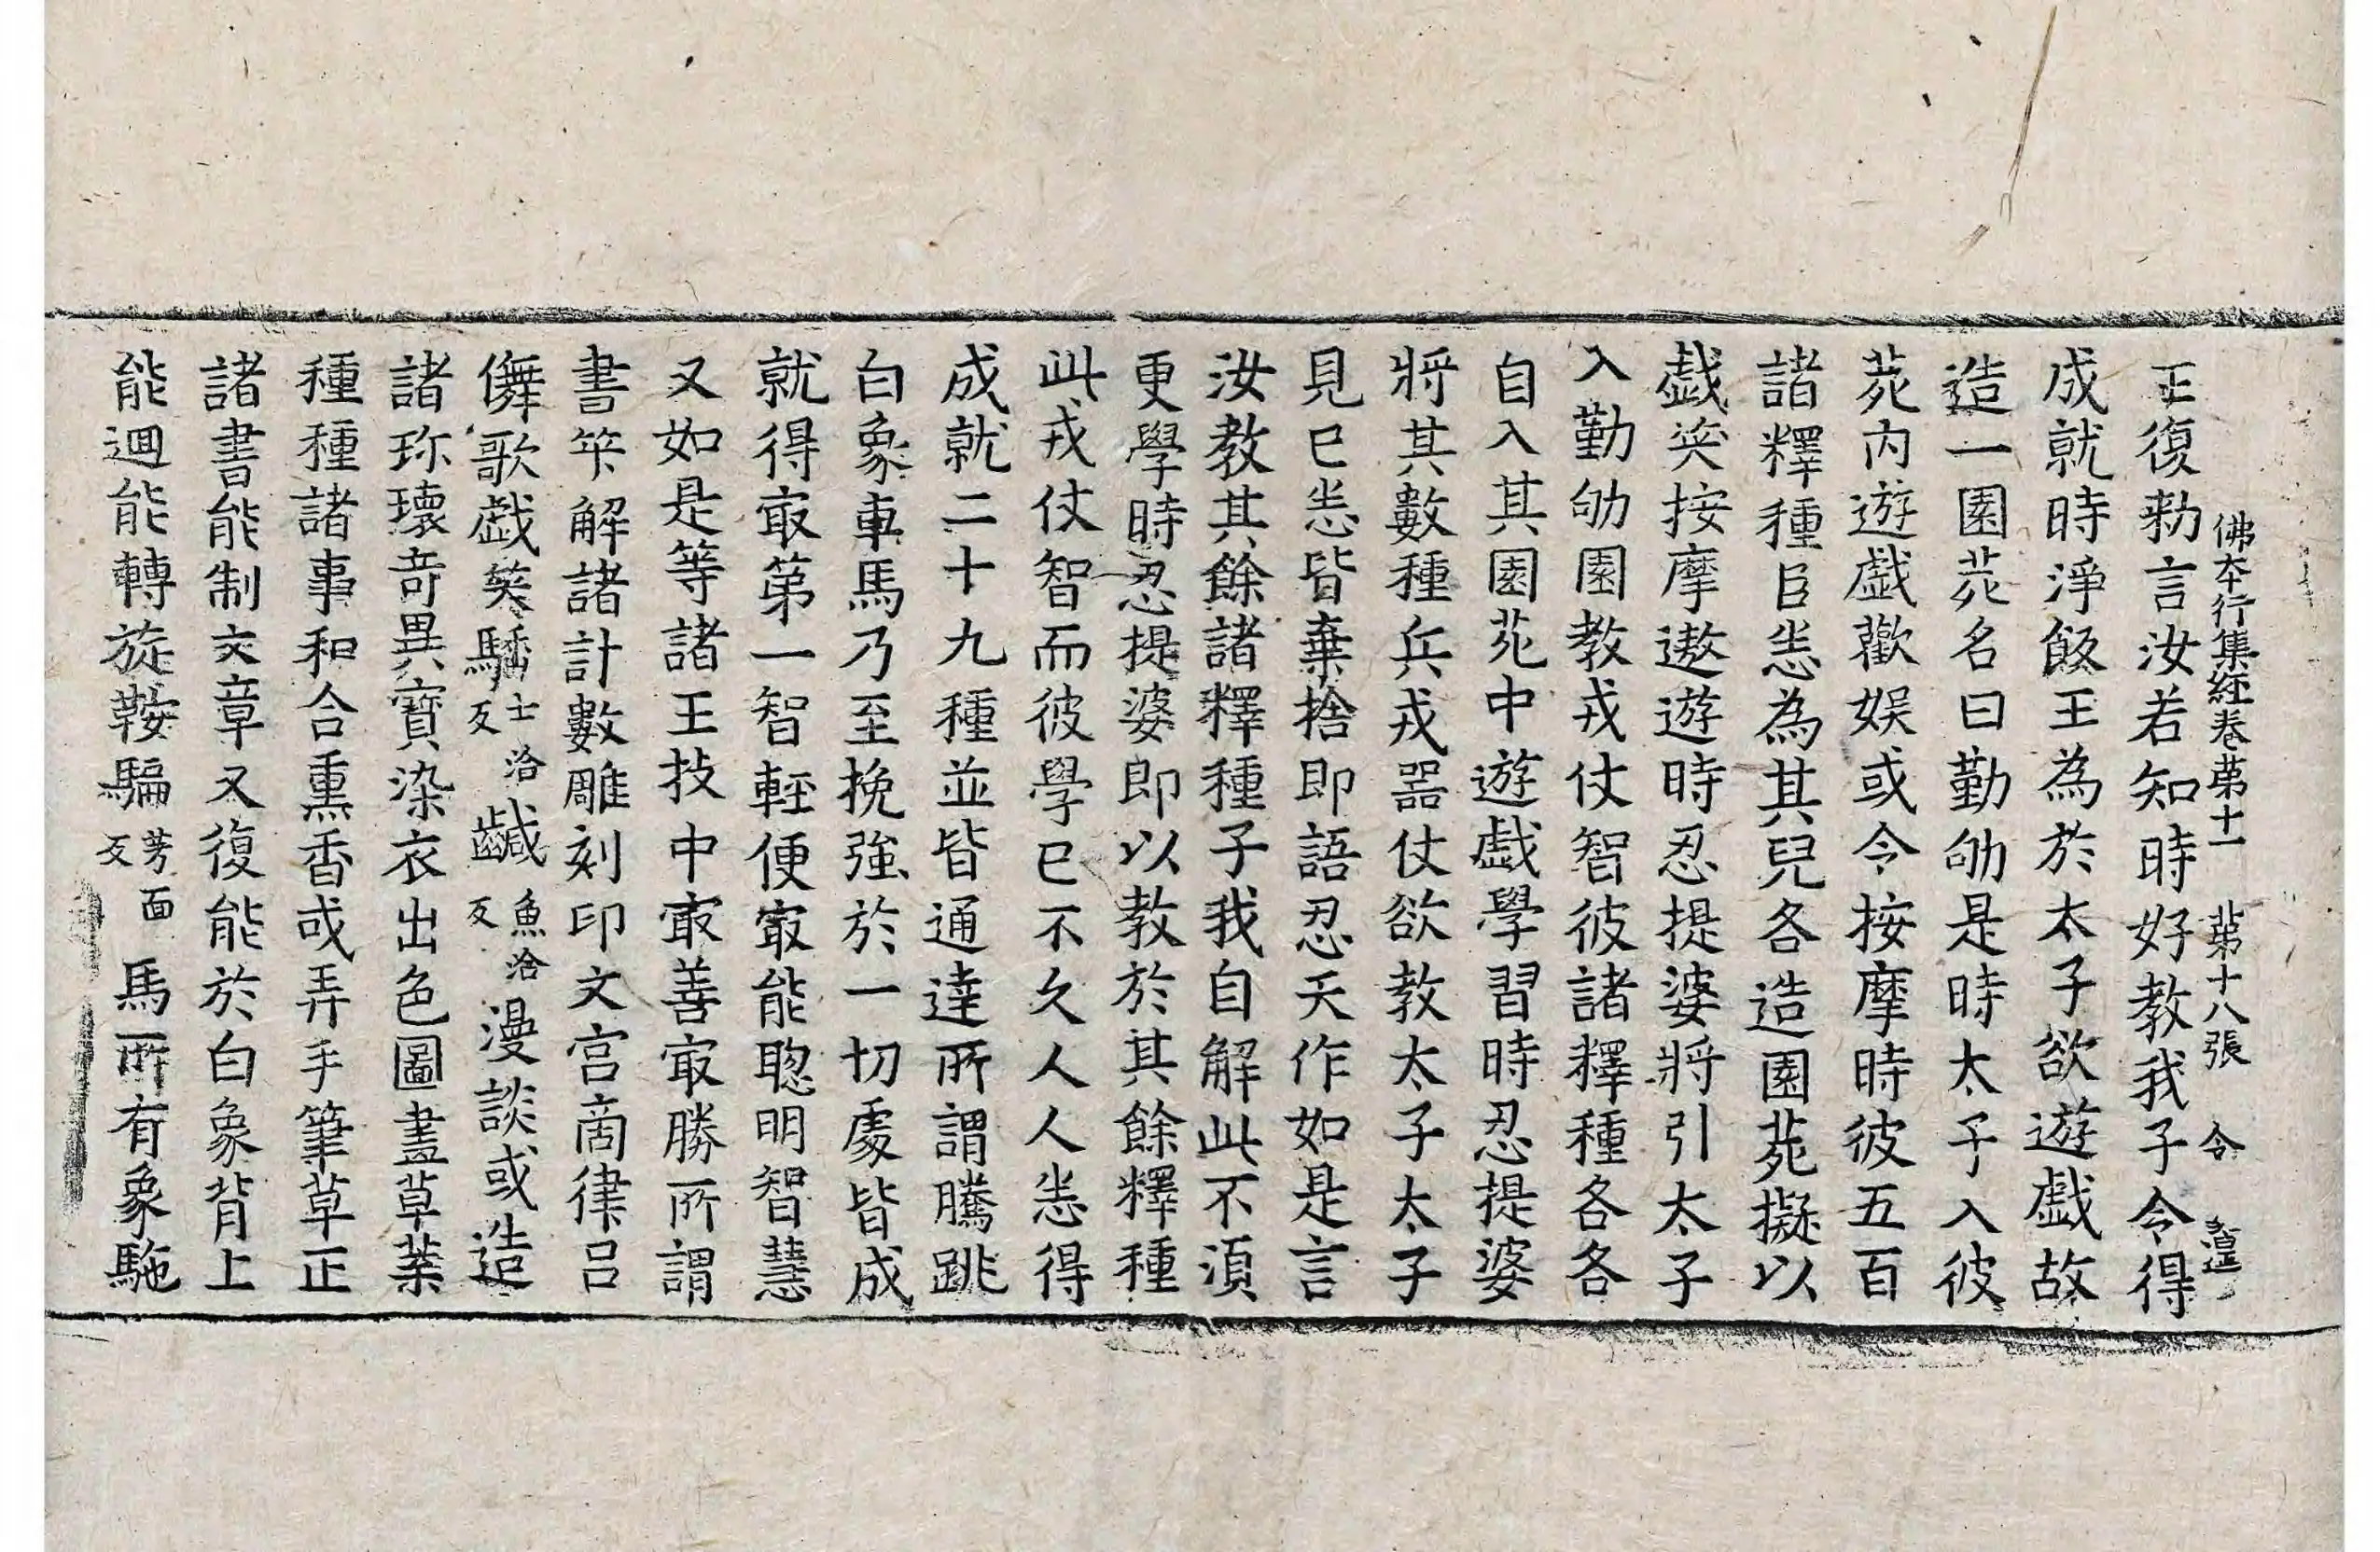 佛本行集經卷第十一 第十八張 令
王復勑言汝若知時好教我子令得
成就時淨飯王為於太子欲遊戲故
造一園苑名曰勤劬是時太子入彼
苑內遊戲歡娛或令按摩時彼五百
諸釋種臣恙為其兒各造園苑擬以
戯笑按摩遨遊時忍提婆將引太子
入勤劬園教戎仗智彼諸釋種各各
自入其園苑中遊戯學習時忍提婆
將其數種兵戎器仗欲教太子太子
見已恙皆棄捨即語忍天作如是言
汝教其餘諸釋種子我自解此不湏
更學時忍提婆即以教於其餘釋種
此戎仗智而彼學已不久人人恙得
成就二十九種並皆通達所謂騰跳
白象車馬乃至挽強於一切處皆成
就得㝡第一智輕便㝡能聦明智慧
又如是等諸王技中㝡善㝡勝所謂
書笇解諸計數雕刻印文宮商律呂
儛歌戯笑騷士洽反鹹魚洽反漫談或造
諸珎瓌竒異寶染衣出色圖畫草葉
種種諸事和合熏香或弄手筆草正
諸書能制文章又復能於白象背上
能迴能轉旋鞍騙芳面反馬所有象駞